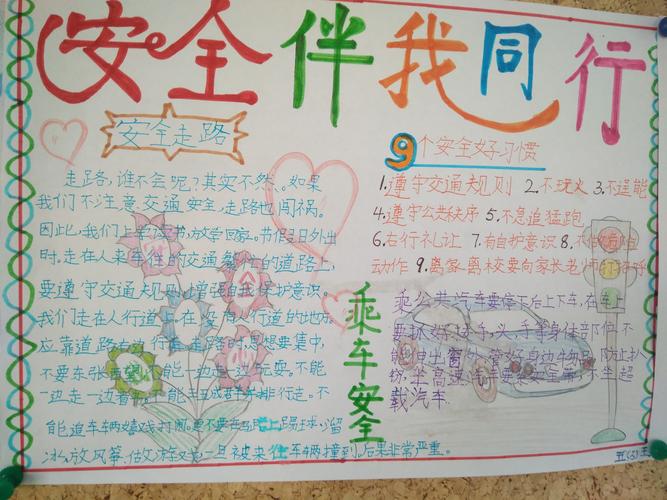 安全伴我同行
安全走路
走路,谁不会呢?其实不然。如果
我们不注意交通安全,走路也闯祸。
因此,我们上学读书,放学回家。节假日外出
时,走在人来车往的交通繁忙的道路上,
要遵守交通规则,增强自我保护意识。
我们走在人行道,在没有人行道的地方,
应靠道路右边行走。走路时,思想要集中,
不要东张西望,不能一边走一边玩耍。不能
一边走一边看书,不能三五成群并排行走。不
能追车辆嬉戏打闹。更不要在马路上踢球,溜
冰,放风筝,做游戏,一旦被来往车辆撞到,后果非常严重。
9个安全好习惯
1.遵守交通规则 2.不玩火 3.不逞能
4.遵守公共秩序 5.不急追猛跑
6.右行礼让 7.有自护意识 8.不做
动作 9.离家离校要向家长老师打招呼
乘车安全
乘公共汽车要停下后上下车,在车上
要扶好,头,手等身体部位不
能伸出窗外,管好身边物品,防止扒
窃,坐高速 要系安全带,不坐超
载汽车.
五(3)王